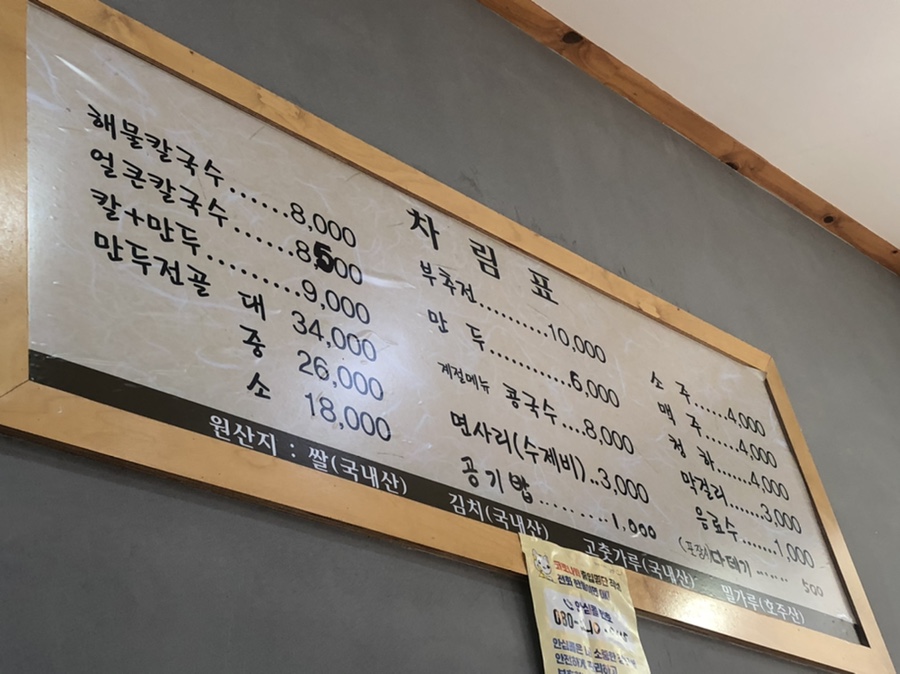 차림표
해물칼국수......8,000
얼큰칼국수......8,500
칼+만두.........9,000
만두전골 대 34,000
중 26,000
소 18,000
부추전.........10,000
만 두..........6,000
계절메뉴 콩국수...8,000
면사리(수제비)..3,000
공기밥.........1,000
소 주......4,000
맥 주......4,000
청 하......4,000
막걸리......3,000
음료수......1,000
다데기 ....... 500
원산지 : 쌀(국내산) 김치(국내산) 고춧가루(국내산) 밀가루(호주산)
전화 한통이면 OK!
080-